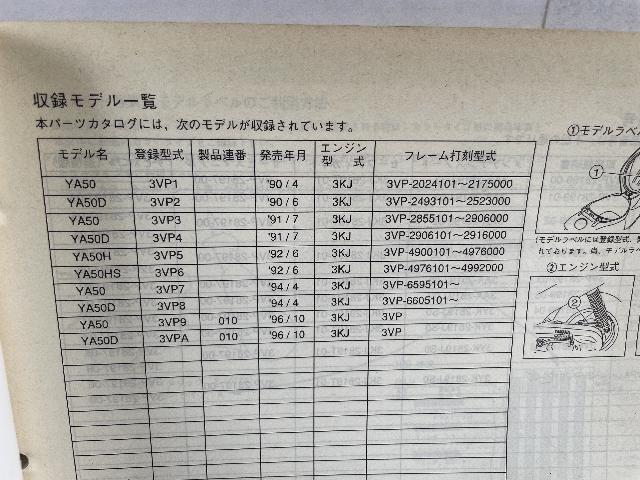 収録モデル一覧
本パーツカタログには、次のモデルが収録されています。
モデル名 登録型式 製品連番 発売年月 エンジン型式 フレーム打刻型式
YA50 3VP1 '90/4 3KJ 3VP-2024101〜2175000
YA50D 3VP2 '90/6 3KJ 3VP-2493101〜2523000
YA50 3VP3 '91/7 3KJ 3VP-2855101〜2906000
YA50D 3VP4 '91/7 3KJ 3VP-2906101〜2916000
YA50H 3VP5 '92/6 3KJ 3VP-4900101〜4976000
YA50HS 3VP6 '92/6 3KJ 3VP-4976101〜4992000
YA50 3VP7 '94/4 3KJ 3VP-6595101〜
YA50D 3VP8 '94/4 3KJ 3VP-6605101〜
YA50 3VP9 010 '96/10 3KJ 3VP
YA50D 3VPA 010 '96/10 3KJ 3VP
①モデルラベ
①
(モデルラベルには登録型式、
れております。尚、モデルラベ
②エンジン型式
②